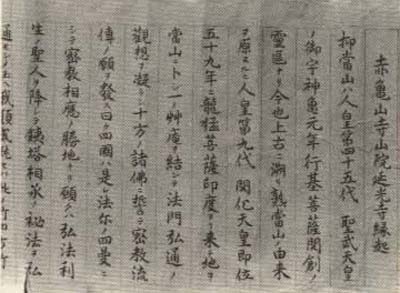 赤亀山寺山院延光寺縁起
抑當山ハ人皇第四十五代 聖武天皇
ノ御宇神亀元年行基菩薩開創ノ
靈區ナリ今也上古ニ溯リ熟當山ノ由来
ヲ原ヌルニ人皇第九代 開化天皇即位
五十九年ニ龍猛菩薩印度ヨリ来リ地ヲ
當山ニトシ一艸庵ヲ結ンテ法門弘通ノ
觀想ヲ凝ラシ十方ノ諸佛ニ誓テ密教流
傳ノ願ヲ發ス曰ク四國ハ是レ法尓ノ四曼ニ
シテ密教相應ノ勝地ナリ願クハ弘法利
生ノ聖人ヲ降シテ鉄塔相承ノ秘法ヲ弘
通セシメ玉ヘ我頂戴